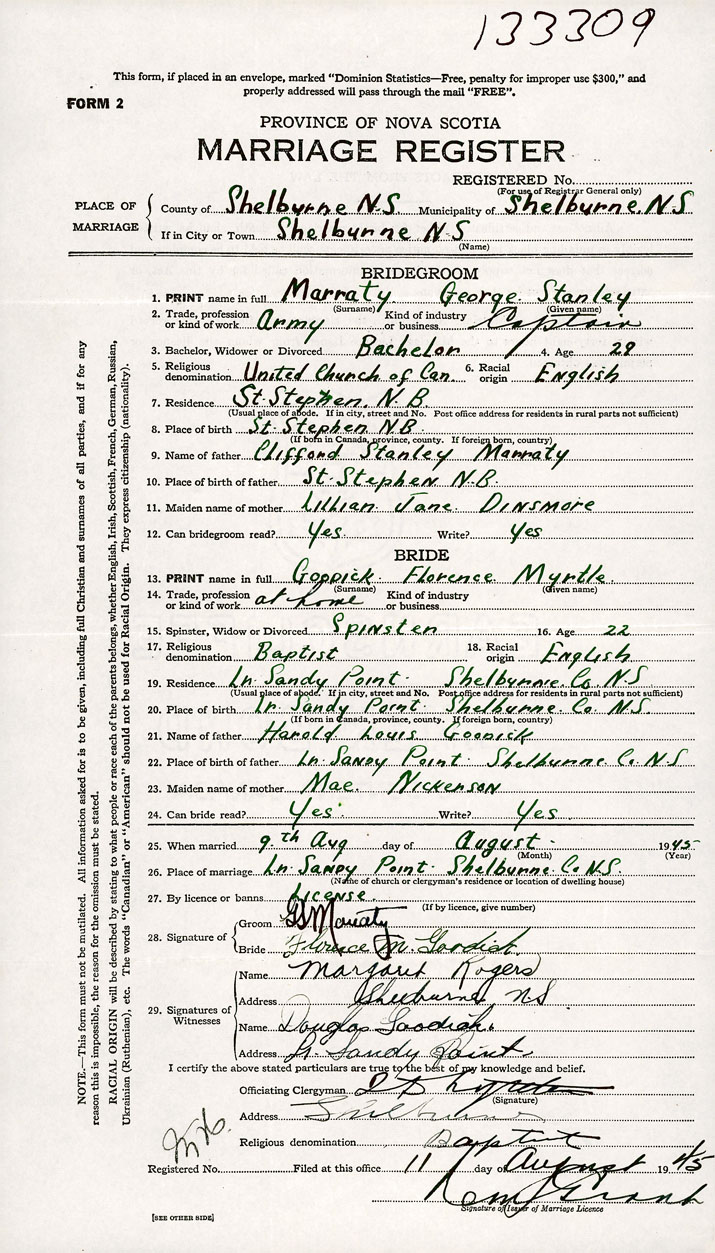 133309
This form, if placed in an envelope, marked “Dominion Statistics—Free, penalty for improper use $300,” and
properly addressed will pass through the mail “FREE”.
FORM 2
PROVINCE OF NOVA SCOTIA
MARRIAGE REGISTER
REGISTERED No.
(For use of Registrar General only)
PLACE OF MARRIAGE
County of Shelburne N.S. Municipality of Shelburne. N.S
If in City or Town Shelburne N S
(Name)
BRIDEGROOM
1. PRINT name in full Marraty George Stanley
(Surname) (Given name)
2. Trade, profession or kind of work Army Kind of industry or business Captain
3. Bachelor, Widower or Divorced Bachelor 4. Age 29
5. Religious denomination United Church of Can. 6. Racial origin English
7. Residence St Stephen. N.B
(Usual place of abode. If in city, street and No. Post office address for residents in rural parts not sufficient)
8. Place of birth St. Stephen N.B.
(If born in Canada, province, county. If foreign born, country)
9. Name of father Clifford Stanley Marraty
10. Place of birth of father St. Stephen N.B.
11. Maiden name of mother Lillian Jane Dinsmore
12. Can bridegroom read? Yes. Write? Yes
BRIDE
13. PRINT name in full Goodick Florence Myrtle
(Surname) (Given name)
14. Trade, profession or kind of work at home Kind of industry or business
15. Spinster, Widow or Divorced Spinster 16. Age 22
17. Religious denomination Baptist 18. Racial origin English
19. Residence Lr. Sandy Point Shelburne Co. N.S
(Usual place of abode. If in city, street and No. Post office address for residents in rural parts not sufficient)
20. Place of birth Lr. Sandy Point Shelburne Co. N.S.
(If born in Canada, province, county. If foreign born, country)
21. Name of father Harold Louis Goodick
22. Place of birth of father Lr. Sandy Point Shelburne Co. N.S
23. Maiden name of mother Mae. Nickerson
24. Can bride read? Yes. Write? Yes
25. When married 9.th Aug day of August 1945
(Month) (Year)
26. Place of marriage Lr. Sandy Point Shelburne Co N.S.
(Name of church or clergyman's residence or location of dwelling house)
27. By licence or banns License
(If by licence, give number)
28. Signature of
Groom G S Marraty
Bride Florence M. Goodick.
29. Signatures of Witnesses
Name Margaret Rogers
Address Shelburne N S
Name Douglas Goodick
Address Lr. Sandy Point
I certify the above stated particulars are true to the best of my knowledge and belief.
Officiating Clergyman
(Signature)
Address Shelburne
Religious denomination Baptist
Registered No. Filed at this office 11 day of August 1945
Grant
Signature of Issuer of Marriage Licence
[SEE OTHER SIDE]
NOTE.—This form must not be mutilated. All information asked for is to be given, including full Christian and surnames of all parties, and if for any
reason this is impossible, the reason for the omission must be stated.
RACIAL ORIGIN will be described by stating to what people or race each of the parents belongs, whether English, Irish, Scottish, French, German, Russian,
Ukrainian (Ruthenian), etc. The words “Canadian” or “American” should not be used for Racial Origin. They express citizenship (nationality).